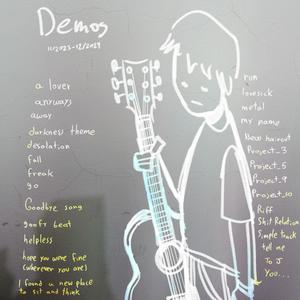 Demos
11/2023-12/2024
a lover
anyways
away
darkness theme
desolation
fall
freak
go
Goodbye song
hopeless
hope you were fine
(wherever you are)
I found a new place
to sit and think
run
lovesick
metal
my name
New haircut
Project_3
Project_5
Project_9
Project_10
Riff
Shit Relation
Simple track
tell me
To J
You...